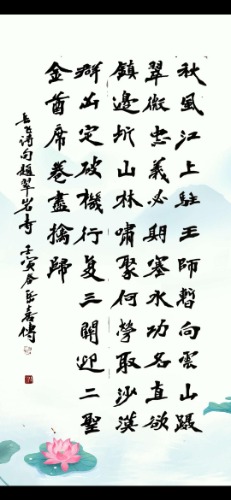 秋風江上駐王師暫向雲山躡
翠微忠義必期塞水功名直欲
鎮邊圻山林嘯聚何勞取沙漠
群凶定破機行復三關迎二聖
金酋席卷盡擒歸
岳飞诗句題翠岩寺 壬寅